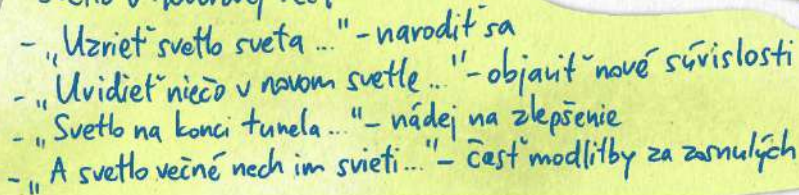 - „Uzrieť svetlo sveta..." - narodiť sa
- „Uvidieť niečo v novom svetle..." - objaviť nové súvislosti
- „Svetlo na konci tunela..." - nádej na zlepšenie
- „A svetlo večné nech im svieti..." - časť modlitby za zosnulých